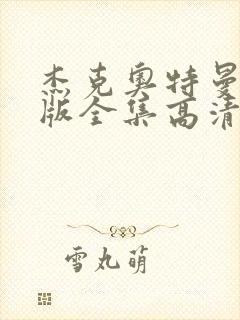 杰克奥特曼
版全集高清
雪丸萌